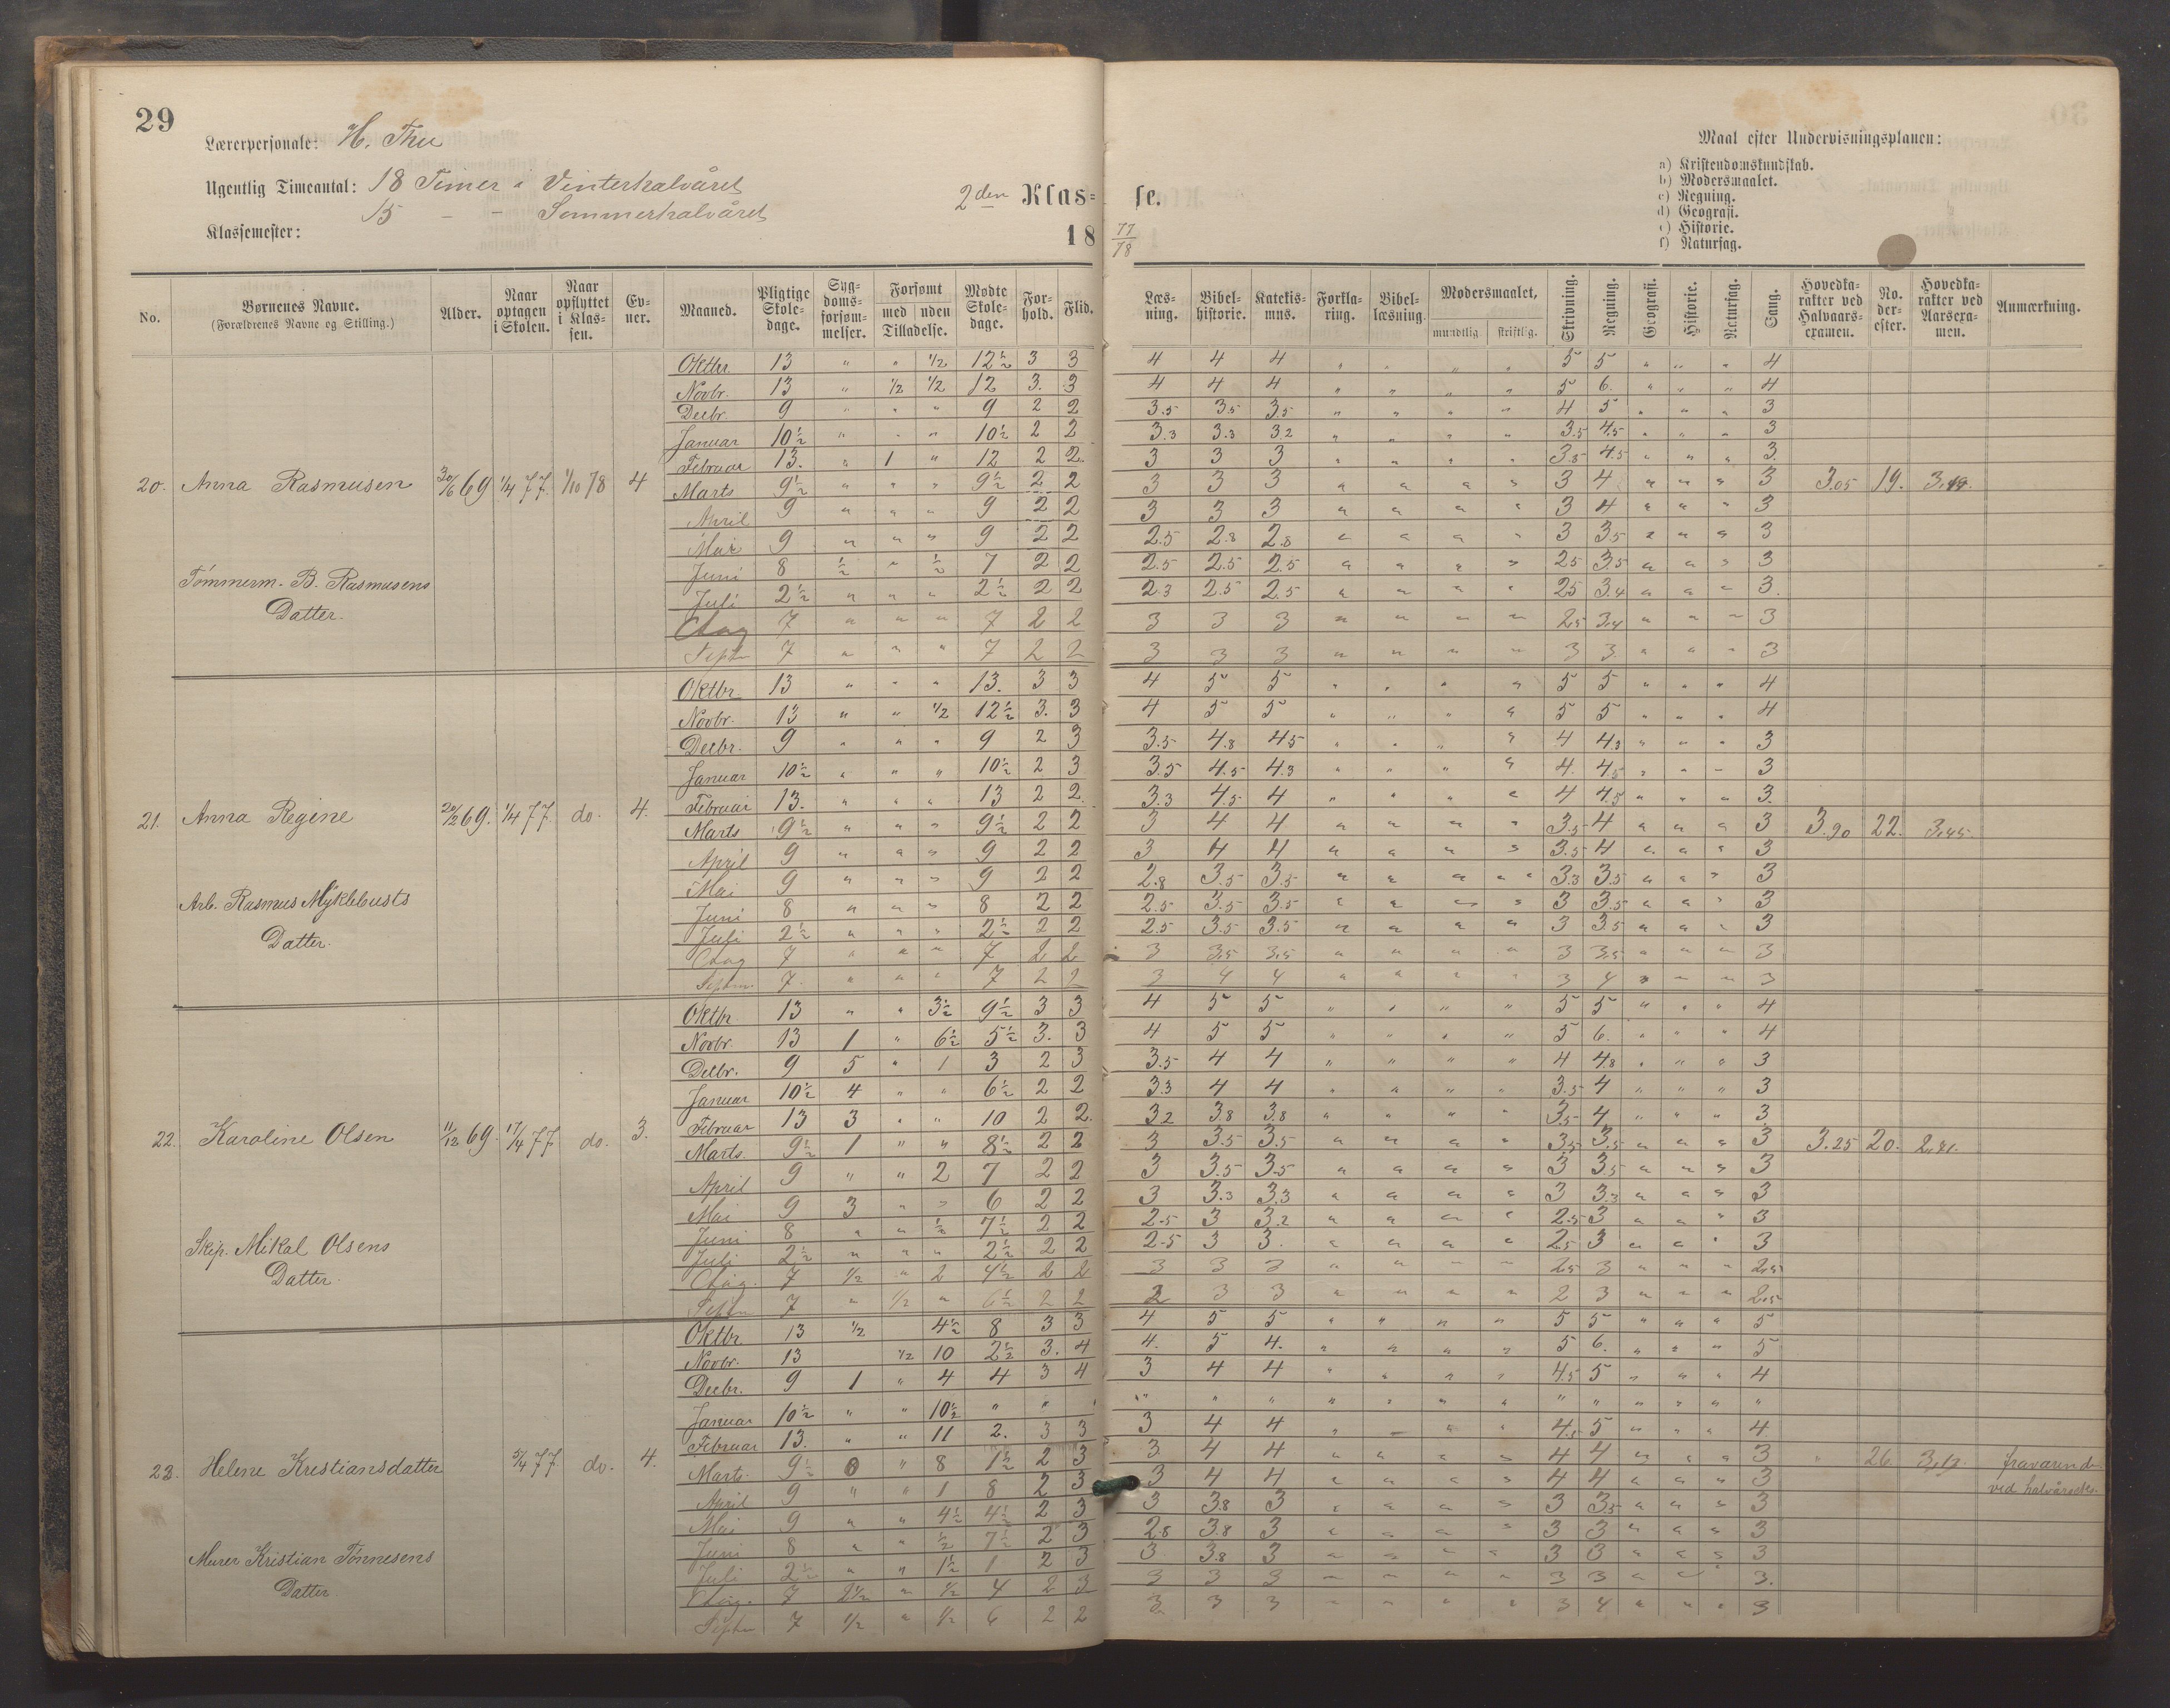 29
Lærerpersonale: H. Thu
Ugentlig Timeantal: 18 Timer i Vinterhalvåret
15 - - Sommerhalvåret
Klassemester:
2den Klasse.
18 77/78
Maal efter Undervisningsplanen:
a) Kristendomskundskab.
b) Modersmaalet.
c) Regning.
d) Geografi.
e) Historie.
f) Naturfag.
No. Børnenes Navne. (Forældrenes Navne og Stilling.) Alder. Naar optagen i Skolen. Naar opflyttet i Klassen. Evner. Maaned. Pligtige Skoledage. Sygdomsforsømmelser. Forsømt med uden Tilladelse. Mødte Skoledage. Forhold. Flid. Læsning. Bibelhistorie. Katekismus. Forklaring. Bibellæsning Modersmaalet, mundtlig skriftlig. Skrivning. Regning. Geografi. Historie. Naturfag. Sang. Hovedkarakter ved Halvaarsexamen. No. derefter. Hovedkarakter ved Aarsexamen. Anmærkning.
Oktbr 13 " " 1/2 12 1/2 3 3 4 4 4 " " " " 5 5 " " " 4
Novbr. 13 " 1/2 1/2 12 3. 3 4 4 4 " " " " 5 6. " " " 4
Decbr 9 " " " 9 2 2 3.5 3.5 3.5 " " " " 4 5 " " " 3
Januar 10 1/2 " " " 10 1/2 2 2 3.3 3.3 3.2 " " " " 3.5 4.5 " " " 3
Februar 13. " 1 " 12 2 2. 3 3 3 " " " " 3.5 4.5 " " " 3.
20. Anna Rasmusen 30/6 69 1/4 77. 1/10 78 4 Marts 9 1/2 " " " 9 1/2 2 2 3 3 3 " " " " 3 4 " " " 3 3.05 19.
April 9 " " " 9 2 2 3 3 3 " " " " 3 4 " " " 3
Mai 9 " " " 9 2 2 2.5 2.8 2.8 " " " " 3 3.5 " " " 3
Tømmerm. B. Rasmusens Juni 8 1/2 " 1/2 7 2 2 2.5 2.5 2.5 " " " " 25 3.5 " " " 3
Datter. Juli 2 1/2 " " " 2 1/2 2 2 2.3 2.5 2.5 " " " " 25 3.4 " " " 3.
Aug 7 " " " 7 2 2 3 3 3 " " " " 2,5 3,4 " " " 3
Septbr 7 " " " 7 2 2 3 3 3 " " " " 3 3 " " " 3
Oktbr 13 " " " 13. 3 3 4 5 5 " " " " 5 5 " " " 4
Novbr. 13 " " 1/2 12 1/2 3. 3 4 5 5 " " " " 5 5 " " " 4
Decbr. 9 " " " 9 2 3 3.5 4.8 4.5 " " " " 4 4.3 " " " 3
Januar 10 1/2 " " " 10 1/2 2 3 3.5 4.5 4.3 " " " " 4. 4.5 " " " 3
Februar 13. " " " 13 2 2. 3.3 4.5 4 " " " " 4 4.5 " " " 3.
21. Anna Regine 69. 1/4 77. do. 4. Marts 9 1/2 " " " 9 1/2 2 2 3 4 4 " " " " 3.5 4 " " " 3 3.90 22. 3,45.
April 9 " " " 9 2 2 3 4 4 " " " " 3.5 4 " " " 3
Mai 9 " " " 9 2 2 2.8 3.5 3.5 " " " " 3.3 3.5 " " " 3
Arb. Rasmus Myklebusts Juni 8 " " " 8 2 2 2.5 3.5 3.5 " " " " 3 3.5 " " " 3
Datter. Juli 2 1/2 " " " 2 1/2 2 2 2.5 3.5 3.5 " " " " 3 3.5 " " " 3
Aug 7 " " " 7 2 2 3 3,5 3,5 " " " " 3 3,5 " " " 3
Septbr. 7. " " " 7 2 2 3 4 4 " " " " 3 4 " " " 3
Oktbr 13 " " 3 1/2 9 1/2 3 3 4 5 5 " " " " 5 5 " " " 4
Novbr. 13 1 " 6 1/2 5 1/2 3. 3 4 5 5 " " " " 5 6. " " " 4
Decbr. 9 5 " 1 3 2 3 3.5 4 4 " " " " 4 4.8 " " " 3
Januar 10 1/2 4 " " 6 1/2 2 2 3.3 4 4 " " " " 3.5 4 " " " 3
Februar 13 3 " " 10 2 2. 3.2 3.8 3.8 " " " " 3.5 4 " " " 3
22. Karoline Olsen 11/12 69. 17/4 77 do. 3. Marts. 9 1/2 1 " " 8 1/2 2 2 3 3.5 3.5 " " " " 3.5 3.5 " " " 3 3.25 20.
April 9 " " 2 7 2 2 3 3.5 3.5 " " " " 3 3.5 " " " 3
Mai 9 3 " " 6 2 2 3 3.3 3.3 " " " " 3 3.3 " " " 3
Juni 8 " " 1/2 7 1/2 2 2 2.5 3 3.2 " " " " 2.5 3 " " " 3
Skip. Mikal Olsens Juli 2 1/2 " " " 2 1/2 2 2 2.5 3 3. " " " " 2.5 3 " " " 3
Datter. Aug. 7 1/2 " 2 4 1/2 2 2 3 3 3 " " " " 2,5 3 " " " 2,5
Septbr 7 " 1/2 " 6 1/2 2 2 2 3 3 " " " " 2 3 " " " 2,5
Oktbr 13 1/2 4 1/2 8 3 3 4 5 5 " " " " 5 5 " " " 5
Novbr. 13 1/2 10 2 1/2 3. 4 4. 5 4. " " " " 5 6. " " " 5
Decbr. 9 1 " 4 4 3 4 3 4 4 " " " " 4.5 5 " " " 4
Januar 10 1/2 " " 10 1/2 " " " " " " " " " " " " " " " "
Februar 13. " " 11 2. 3 3 3 4 4 " " " " 4.5 5 " " " 4.
23. Helene Kristiansdatter 5/4 77 do. 4. Marts. 9 1/2 0 " 8 1 1/2 2 3 3 4 4 " " " " 4 4 " " " 3 " 26.
April 9 " " 1 8 2 3 3 4 4 " " " " 4 4 " " " 3 ved
Mai 9 " " 4 1/2 4 1/2 2 3 3 3.8 3 " " " " 3 3.5 " " " 3
Juni 8 " " 1/2 7 1/2 2 3 2.8 3.8 3 " " " " 3 3 " " " 3
Murer Kristian Tønnesens Juli 2 1/2 " " 1 1/2 1 2 3 3. 3.8 3 " " " " 3 3 " " " 3
Datter. Aug. 7 2 1/2 " 1/2 4 2 3 3 3 3 " " " " 3 3 " " 3.
Septbr 7 1/2 " 1/2 6 2 2 3 3 3 " " " " 3 4 " " " 3